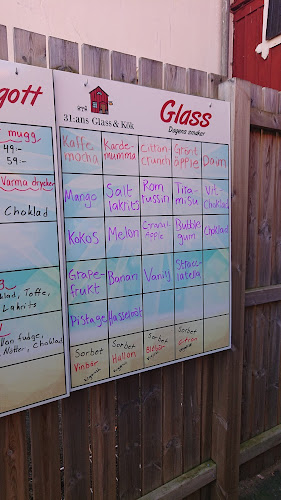 gott
mugg
49:-
59:-
Varma drycker
Choklad
Toffe,
fudge,
Nötter, Choklad
31:ans Glass & Kök
Glass
Dagens smaker
Kaffe
mocha
Karde-
mumma
Citron
crunch
Grönt
äpple
Daim
Mango
Salt
lakrits
Rom
russin
Tira-
misu
Vit-
choklad
Kokos
Melon
Granat
äpple
Bubble
gum
Choklad
Grape-
frukt
Banan
Vanilj
Stracc-
iatella
Pistage
Hasselnöt
Sorbet
Vinbär
Sorbet
Hallon
Sorbet
Blåbär
Sorbet
Citron